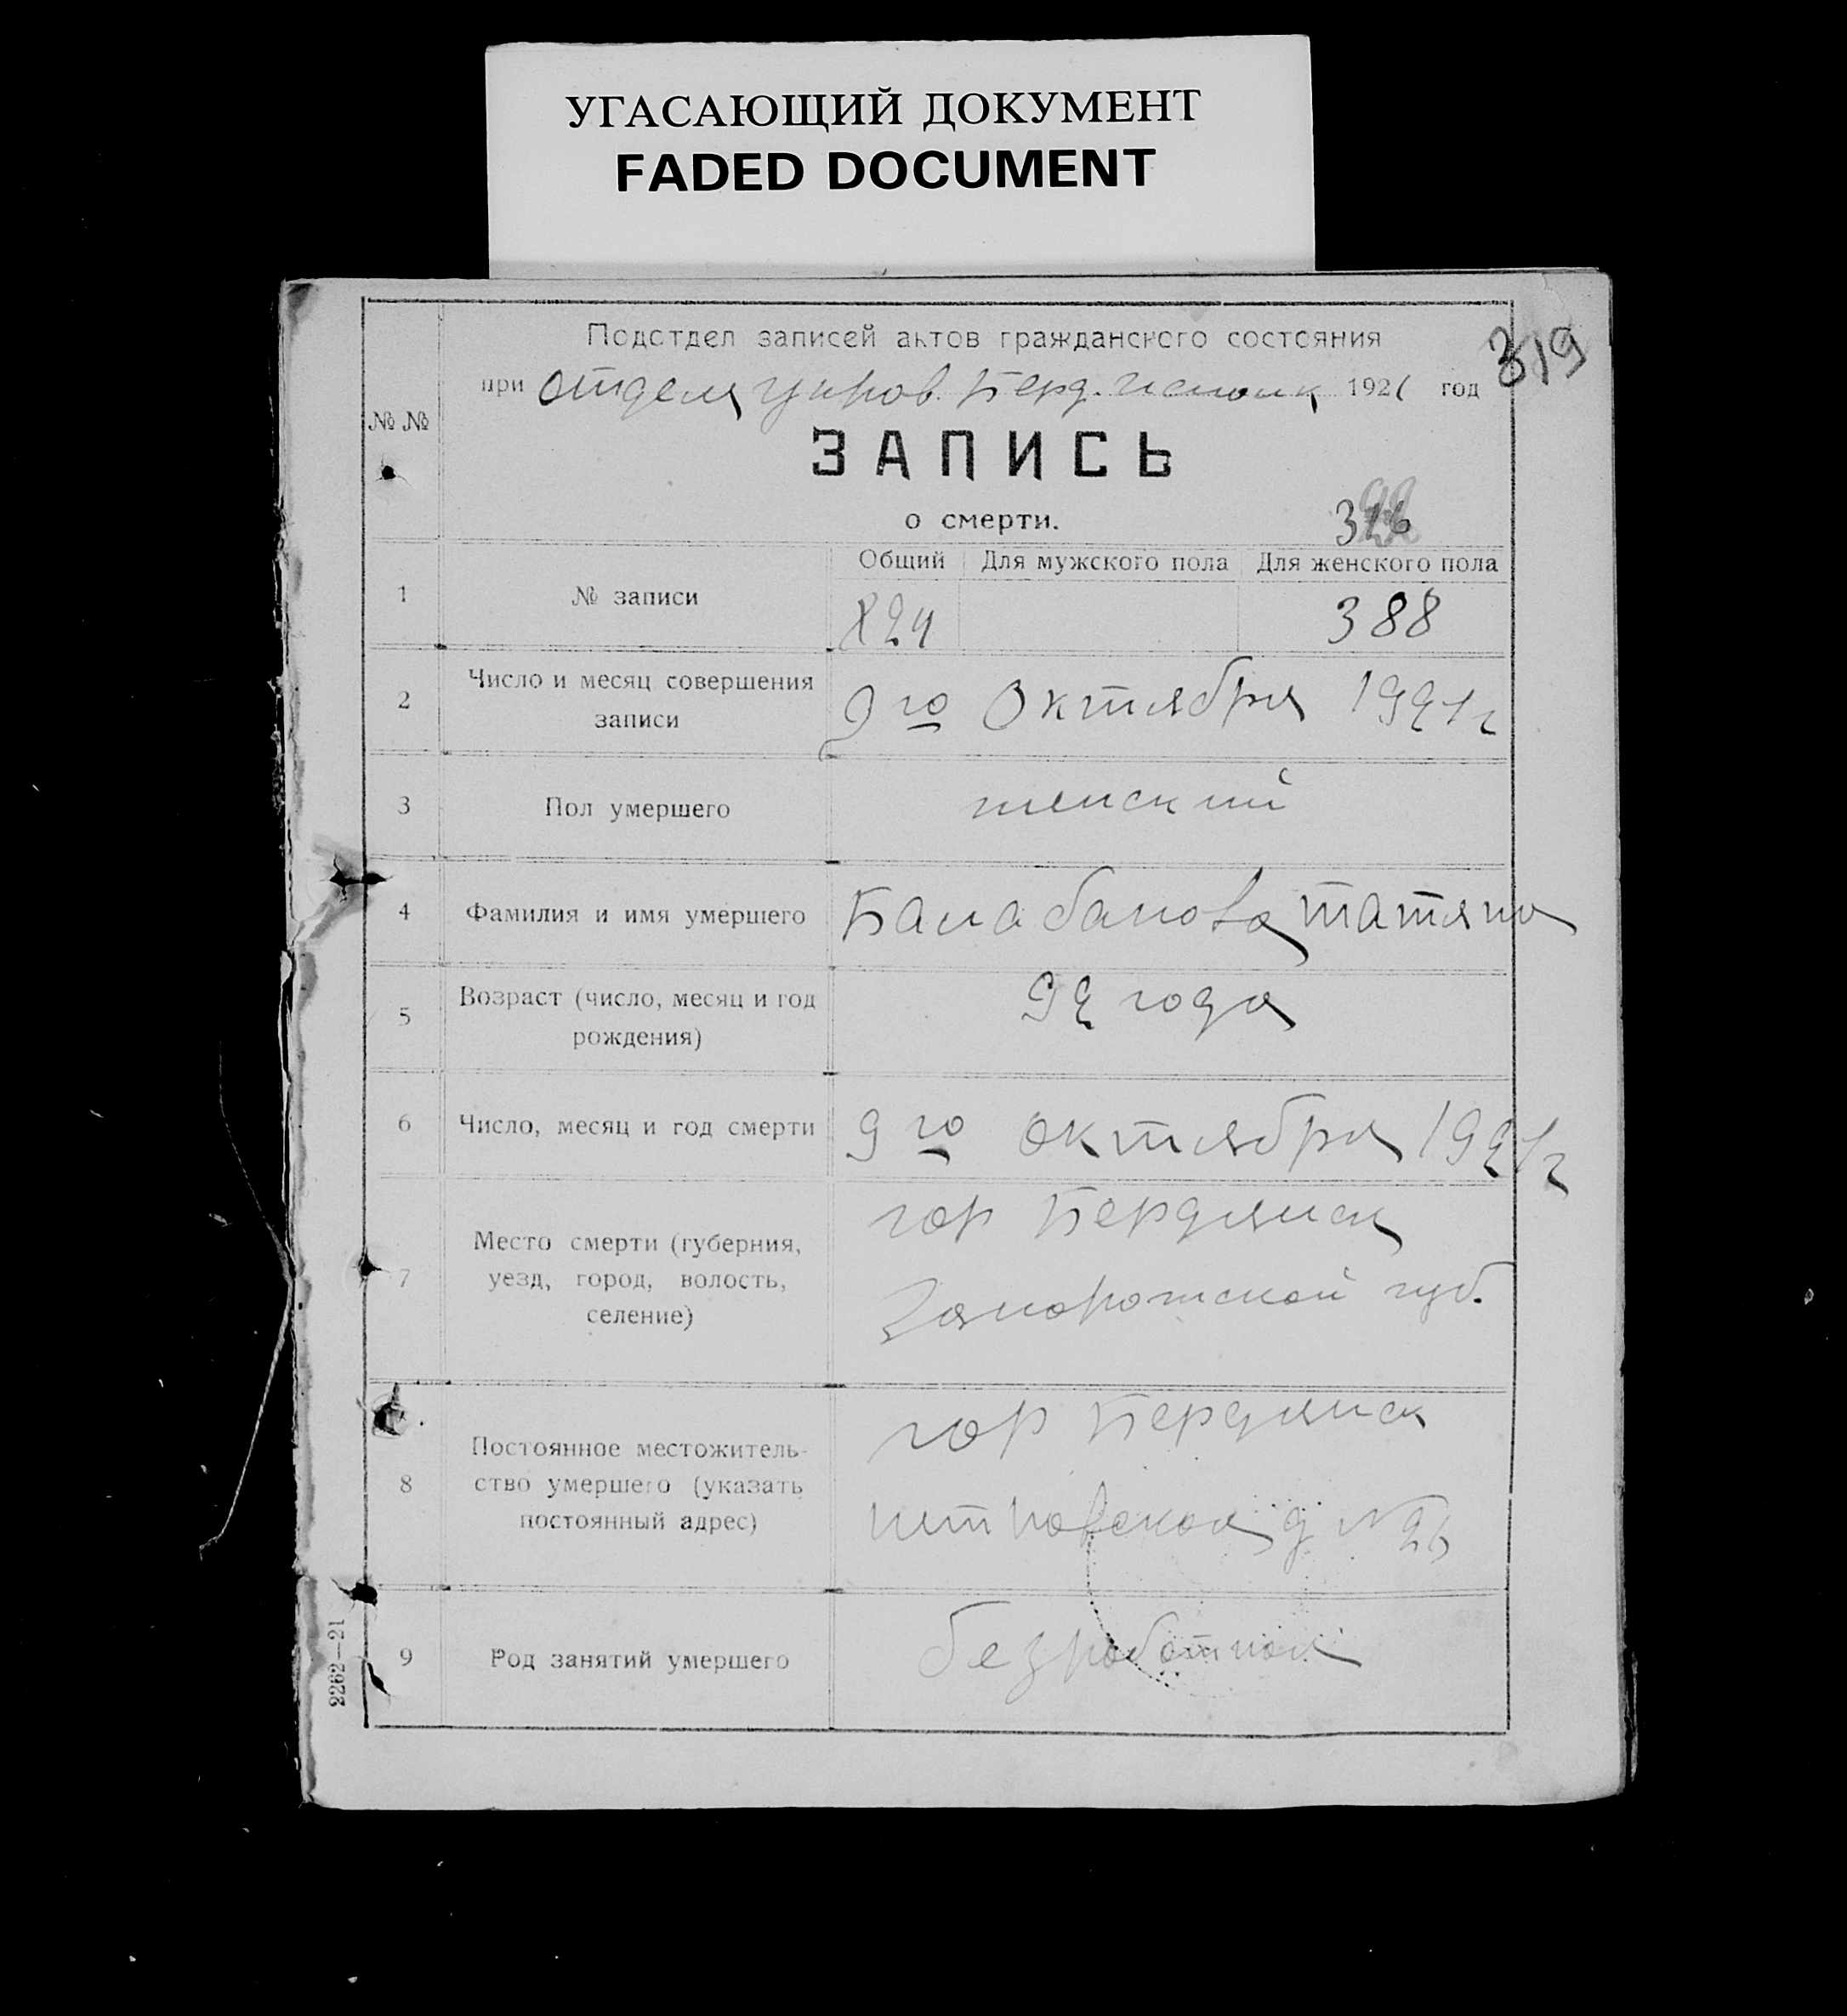 УГАСАЮЩИЙ ДОКУМЕНТ
FADED DOCUMENT
319
Подотдел записей актов гражданского состояния
при Отдела Управ. Берд. Исполк 1921 год
№ №
ЗАПИСЬ
о смерти.
Общий Для мужского пола Для женского пола
1 № записи 824 388
2 Число и месяц совершения
записи
9 го Октября 1921 г
3 Пол умершего женский
4 Фамилия и имя умершего Балабанова Татяна
5 Возраст (число, месяц и год
рождения)
92 года
6 Число, месяц и год смерти 9 го октября 1921 г
7 Место смерти (губерния,
уезд, город, волость,
селение)
гор Бердянск
Запорожской губ.
8 Постоянное местожитель-
ство умершего (указать
постоянный адрес)
гор Бердянск
д № 26
9 Род занятий умершего безработная
2262—21